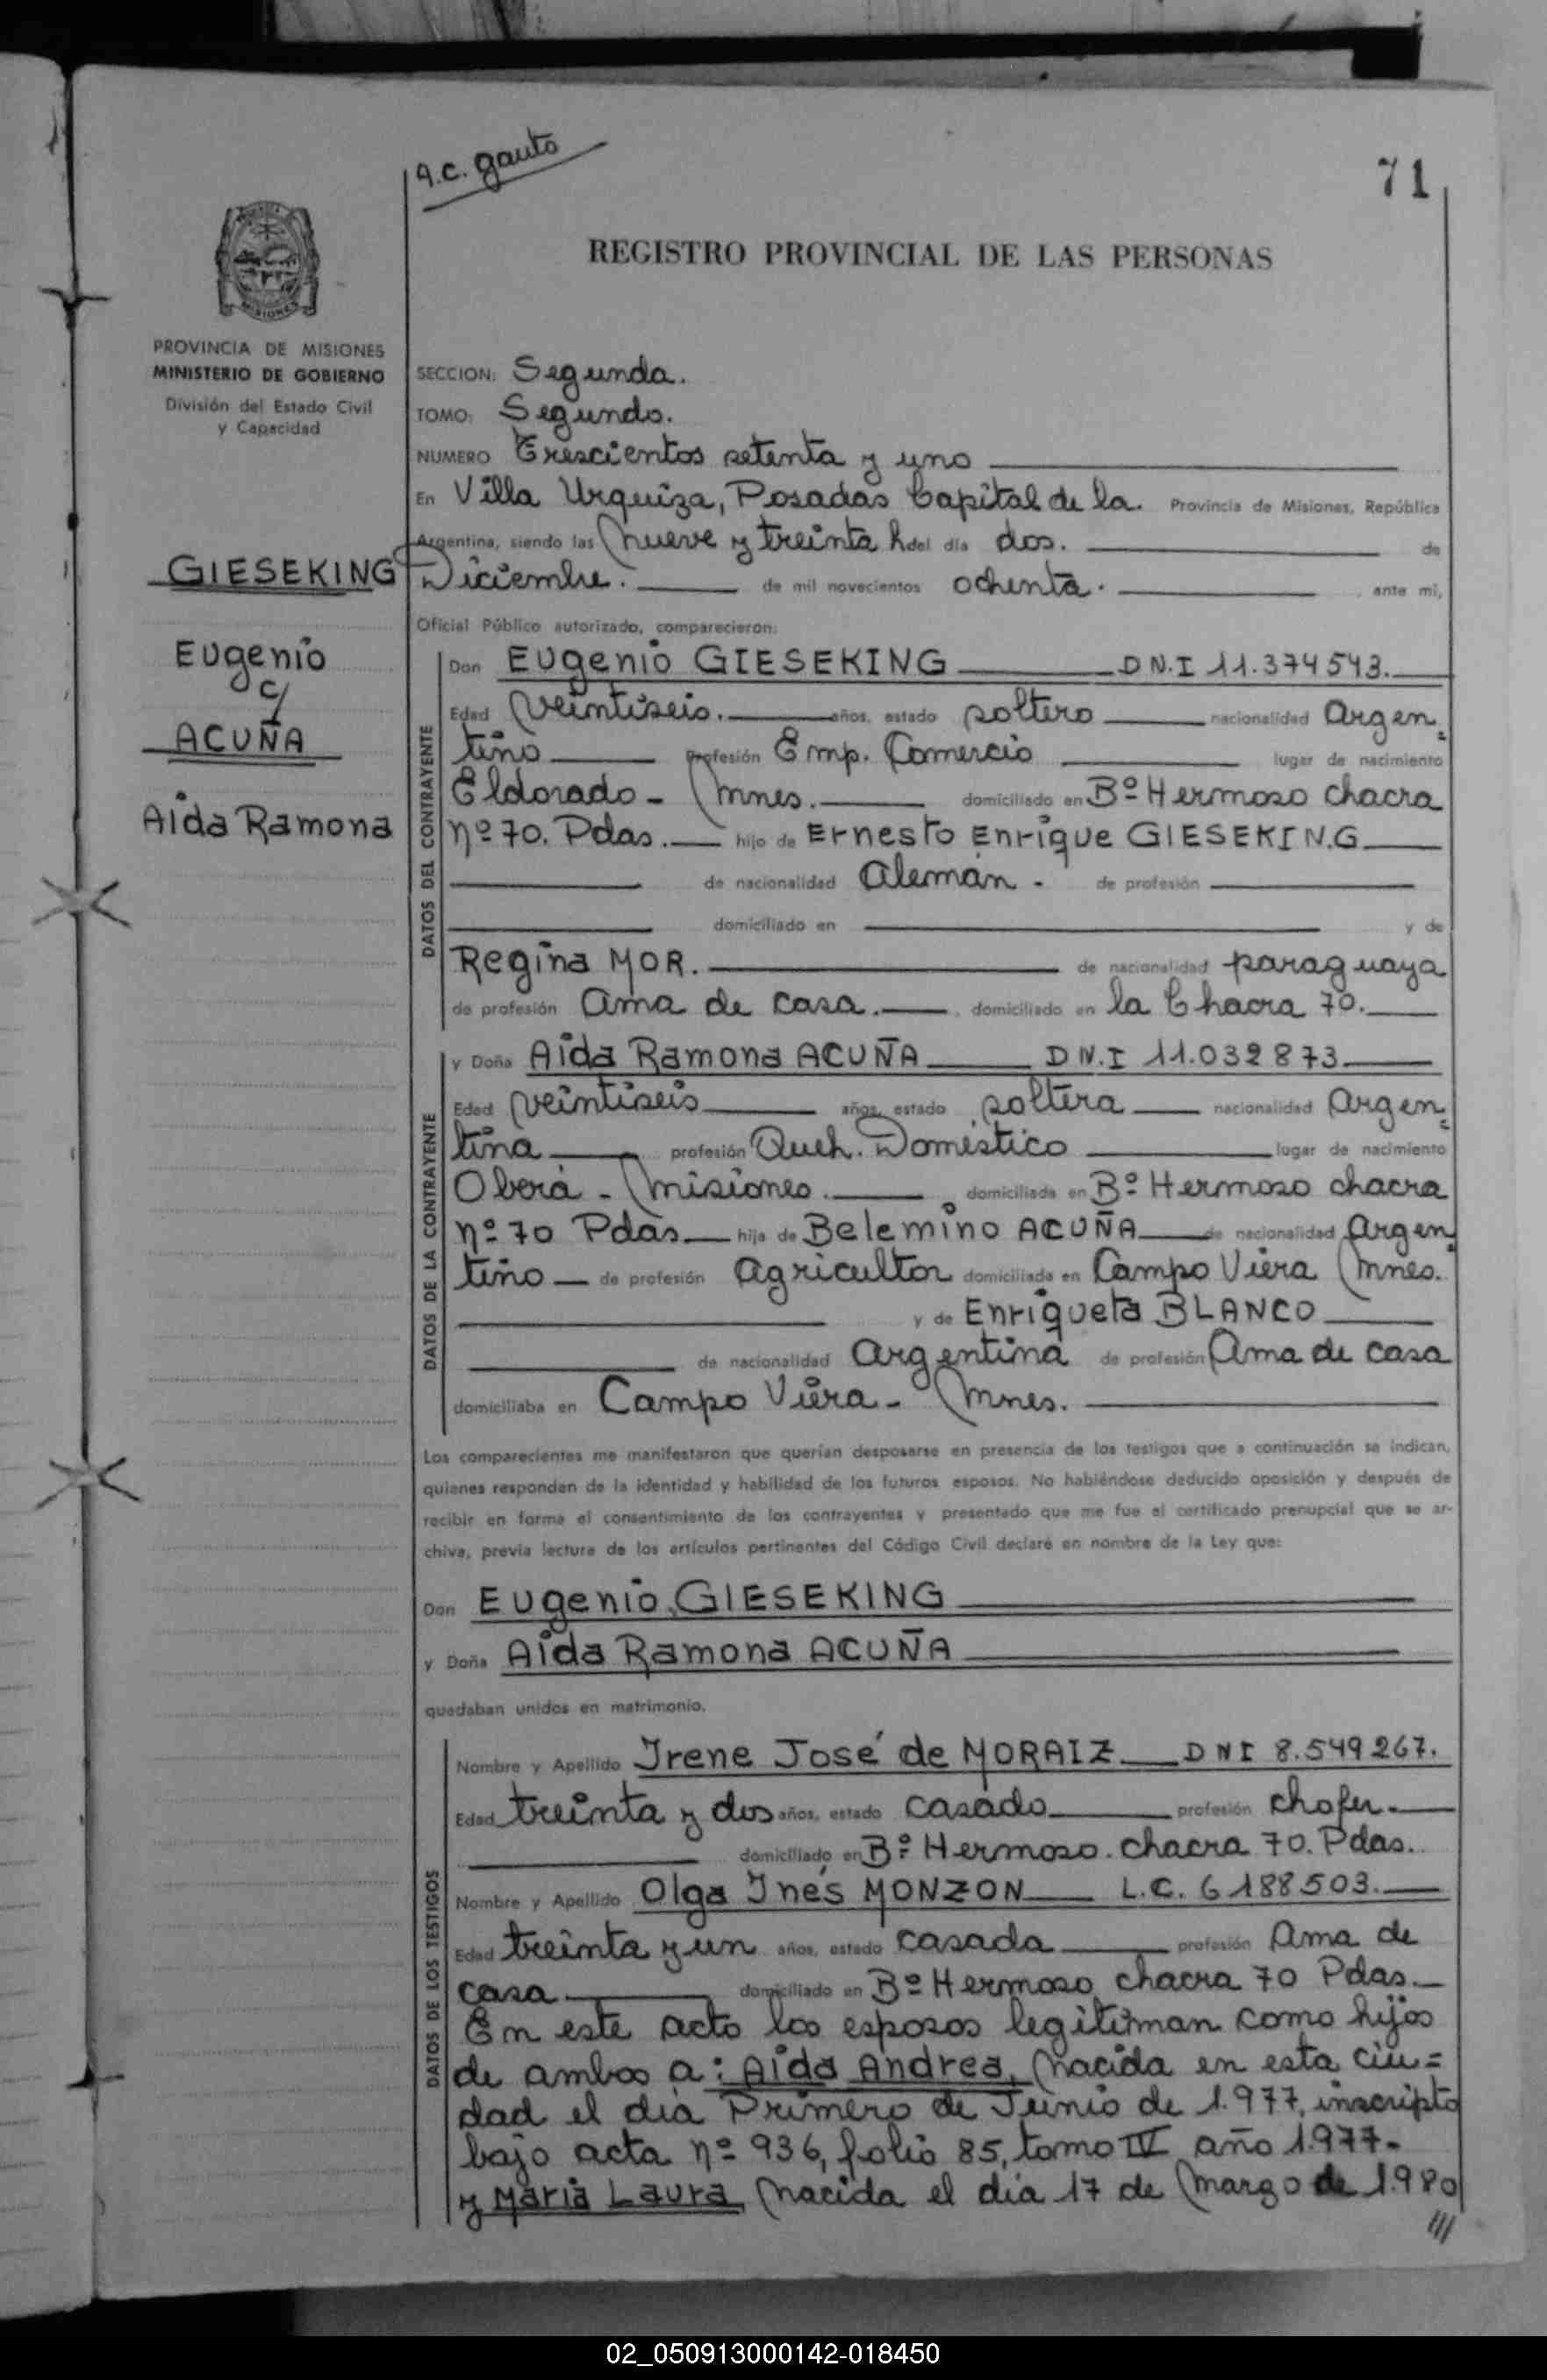 A.C. Gauto
71
REGISTRO PROVINCIAL DE LAS PERSONAS
MISIONES
PROVINCIA DE MISIONES
MINISTERIO DE GOBIERNO
División del Estado Civil
y Capacidad
GIESEKING
Eugenio
c/
ACUÑA
Aida Ramona
SECCION: Segunda.
TOMO: Segundo.
NUMERO Trescientos setenta y uno
En Villa Urquiza, Posadas Capital de la. Provincia de Misiones, República
Argentina, siendo las nueve y treinta h del día dos. de
Diciembre. de mil novecientos ochenta. , ante mí,
Oficial Público autorizado, comparecieron:
DATOS DEL CONTRAYENTE
Don Eugenio GIESEKING D N.I 11.374543.
Edad veintiseis. años, estado soltero nacionalidad Argen=
tino profesión Emp. Comercio lugar de nacimiento
Eldorado - Mnes. domiciliado en Bº Hermoso chacra
nº 70. Pdas. hijo de Ernesto Enrique GIESEKING
de nacionalidad Alemán. de profesión
domiciliado en y de
Regina MOR. de nacionalidad paraguaya
de profesión Ama de casa. domiciliado en la Chacra 70.
DATOS DE LA CONTRAYENTE
y Doña Aida Ramona ACUÑA D N.I 11.032873
Edad veintiseis años, estado soltera nacionalidad Argen=
tina profesión Queh. Doméstico lugar de nacimiento
Oberá - Misiones. domiciliada en Bº Hermoso chacra
nº 70 Pdas hija de Belemino ACUÑA de nacionalidad Argen
tino de profesión Agricultor domiciliado en Campo Viera Mnes.
y de Enriqueta BLANCO
de nacionalidad Argentina de profesión Ama de casa
domiciliaba en Campo Viera - Mnes.
Los comparecientes me manifestaron que querían desposarse en presencia de los testigos que a continuación se indican,
quienes responden de la identidad y habilidad de los futuros esposos. No habiéndose deducido oposición y después de
recibir en forma el consentimiento de los contrayentes y presentado que me fue el certificado prenupcial que se ar-
chiva, previa lectura de los artículos pertinentes del Código Civil declaré en nombre de la Ley que:
Don Eugenio GIESEKING
y Doña Aida Ramona ACUÑA
quedaban unidos en matrimonio.
DATOS DE LOS TESTIGOS
Nombre y Apellido Irene José de MORAIZ DNI 8.549267.
Edad treinta y dos años, estado casado profesión chofer.
domiciliado en Bº Hermoso. chacra 70. Pdas.
Nombre y Apellido Olga Inés MONZON L.C. 6188503.
Edad treinta y un años, estado casada profesión Ama de
casa domiciliado en Bº Hermoso chacra 70 Pdas.
En este acto los esposos legitiman como hijos
de ambos a: Aida Andrea, nacida en esta ciu=
dad el día Primero de Junio de 1.977, inscripto
bajo acta nº 936, folio 85, tomo IV año 1.977.
y Maria Laura nacida el día 17 de Marzo de 1.980
///
02_050913000142-018450